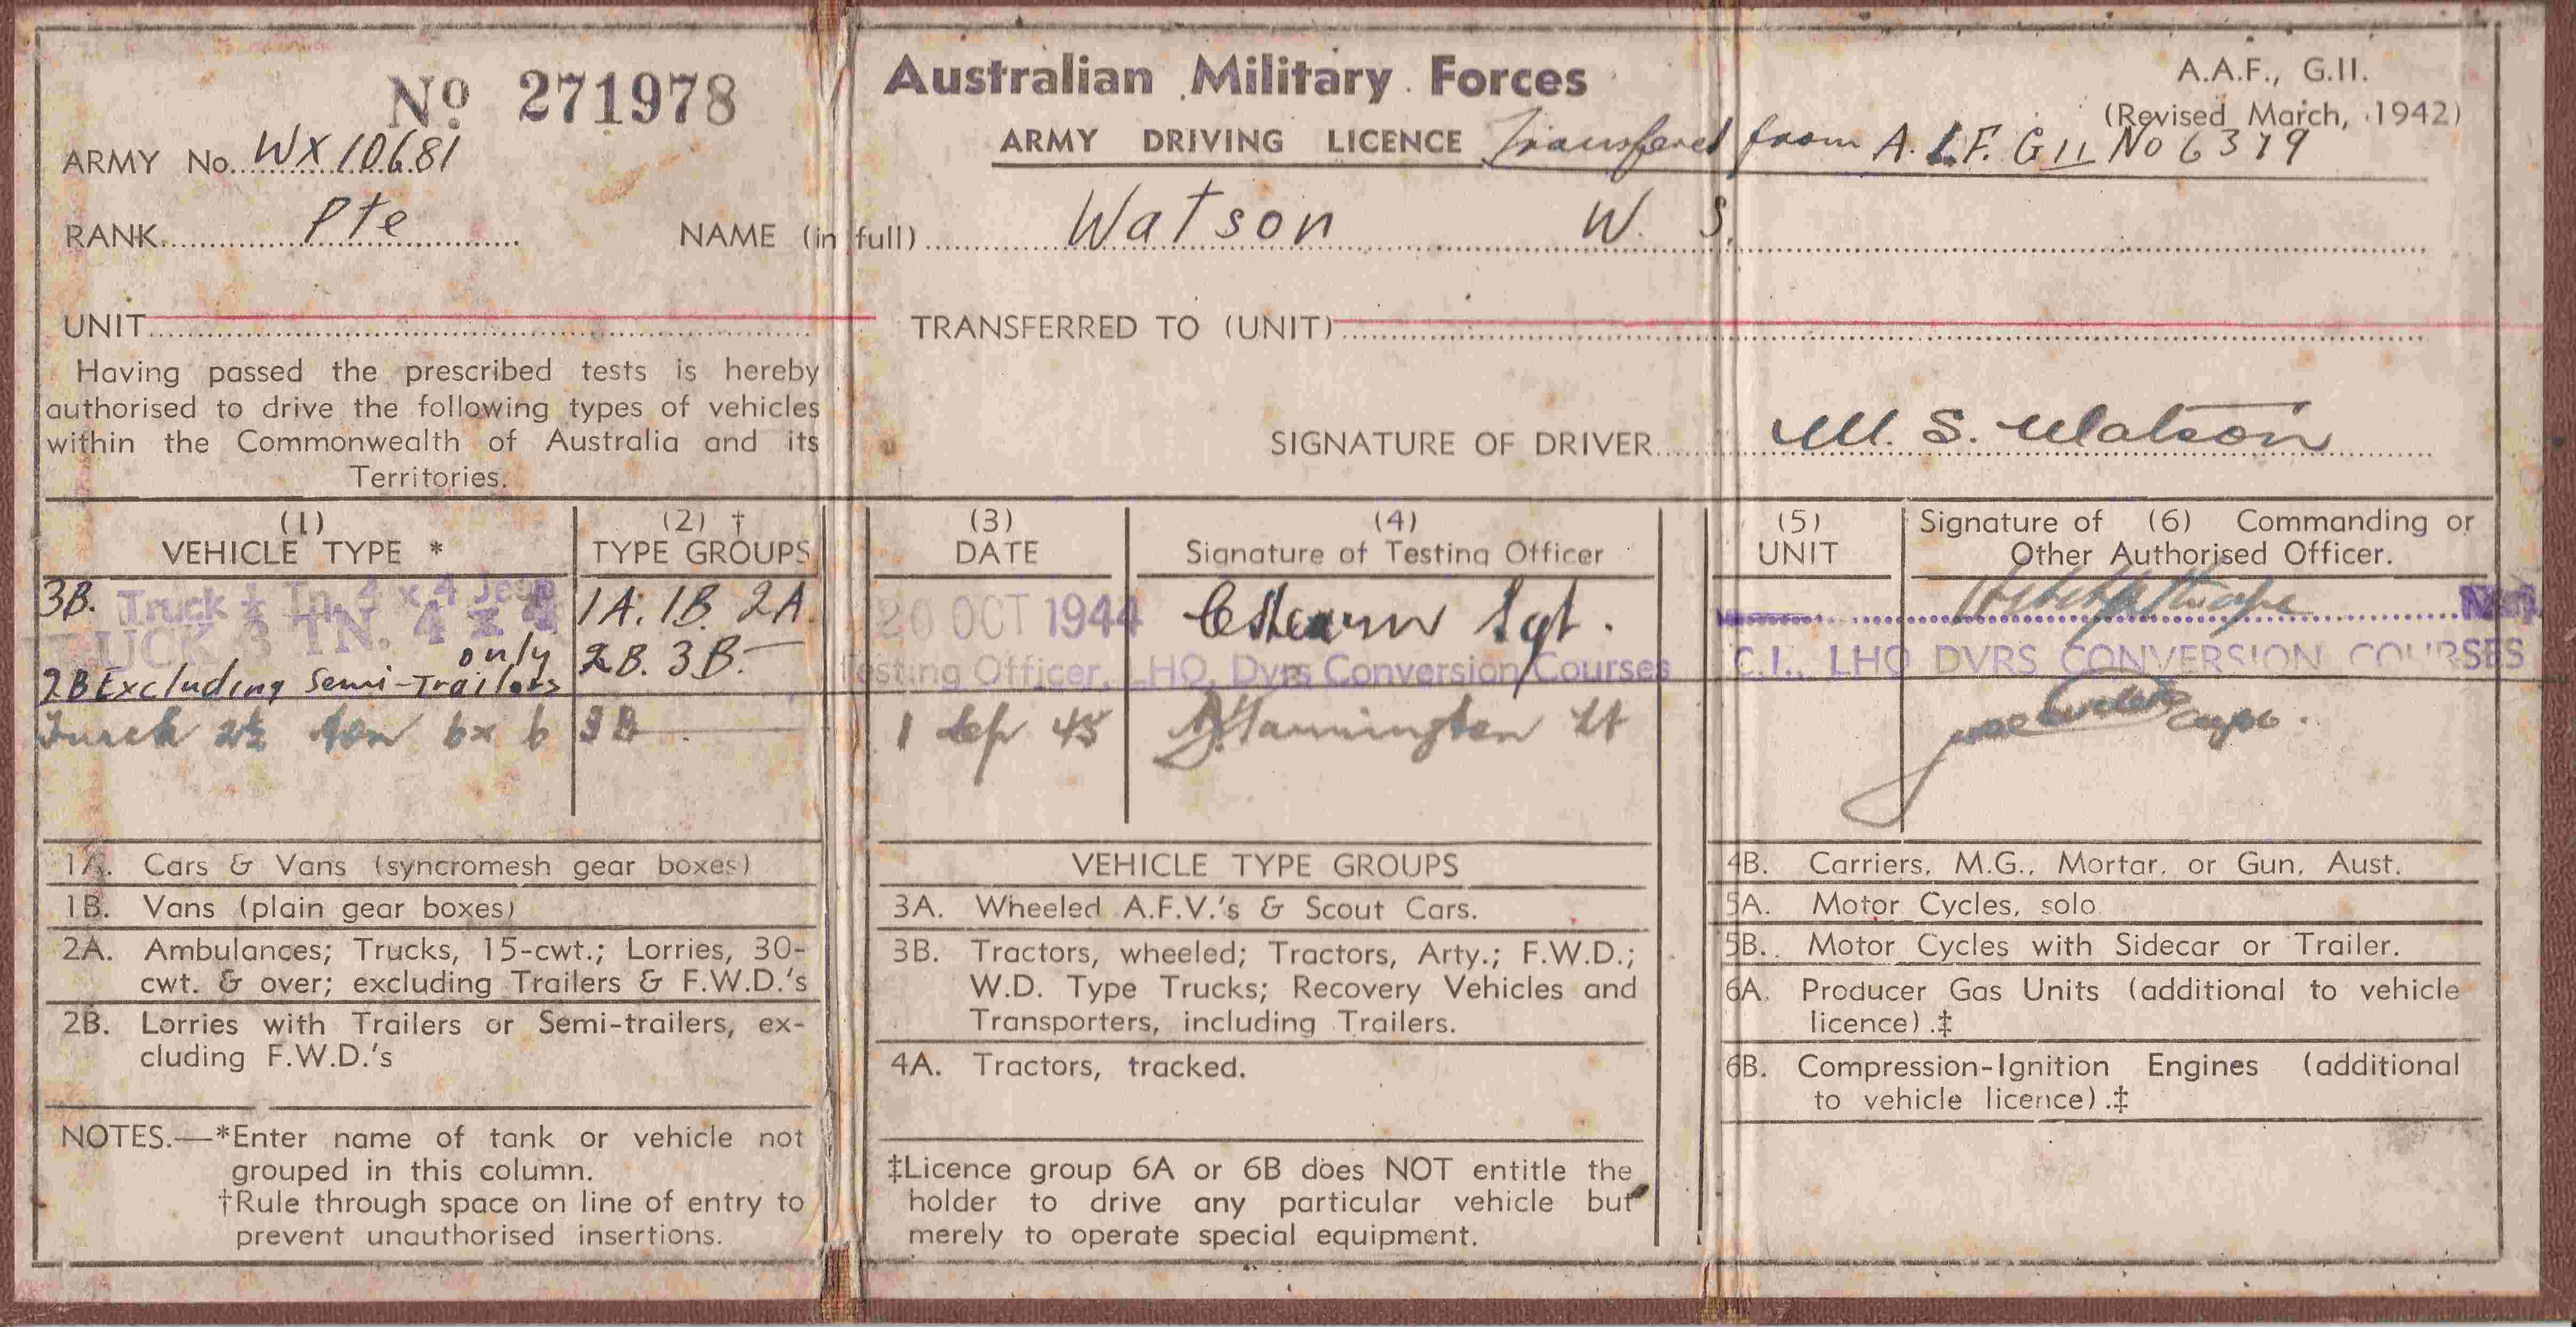 No 271978
Australian Military Forces
A.A.F., G.II.
(Revised March, 1942)
ARMY No. WX10681
ARMY DRIVING LICENCE Transfered from A.I.F. G II No 6379
RANK Pte
NAME (in full) Watson W. S.
UNIT
TRANSFERRED TO (UNIT)
Having passed the prescribed tests is hereby
authorised to drive the following types of vehicles
within the Commonwealth of Australia and its
Territories.
SIGNATURE OF DRIVER W. S. Watson
(1)
VEHICLE TYPE *
(2) †
TYPE GROUPS
(3)
DATE
(4)
Signature of Testing Officer
(5)
UNIT
Signature of (6) Commanding or
Other Authorised Officer.
3B. Truck 4 x 4 Jeep
TRUCK 3 TN. 4 x 4
only
2B Excluding Semi-Trailers
1A. 1B. 2A.
2B. 3B.
20 OCT 1944
Sgt.
Testing Officer, LHQ, Dvrs Conversion Courses
C.I., LHQ DVRS CONVERSION COURSES
Truck 2½ ton 6x6
3B
1 Sep 45
Lt
Capt.
1A. Cars & Vans (syncromesh gear boxes)
1B. Vans (plain gear boxes)
2A. Ambulances; Trucks, 15-cwt.; Lorries, 30-
cwt. & over; excluding Trailers & F.W.D.'s
2B. Lorries with Trailers or Semi-trailers, ex-
cluding F.W.D.'s
VEHICLE TYPE GROUPS
3A. Wheeled A.F.V.'s & Scout Cars.
3B. Tractors, wheeled; Tractors, Arty.; F.W.D.;
W.D. Type Trucks; Recovery Vehicles and
Transporters, including Trailers.
4A. Tractors, tracked.
4B. Carriers, M.G., Mortar, or Gun, Aust.
5A. Motor Cycles, solo
5B. Motor Cycles with Sidecar or Trailer.
6A. Producer Gas Units (additional to vehicle
licence).‡
6B. Compression-Ignition Engines (additional
to vehicle licence).‡
NOTES.—*Enter name of tank or vehicle not
grouped in this column.
†Rule through space on line of entry to
prevent unauthorised insertions.
‡Licence group 6A or 6B does NOT entitle the
holder to drive any particular vehicle but
merely to operate special equipment.